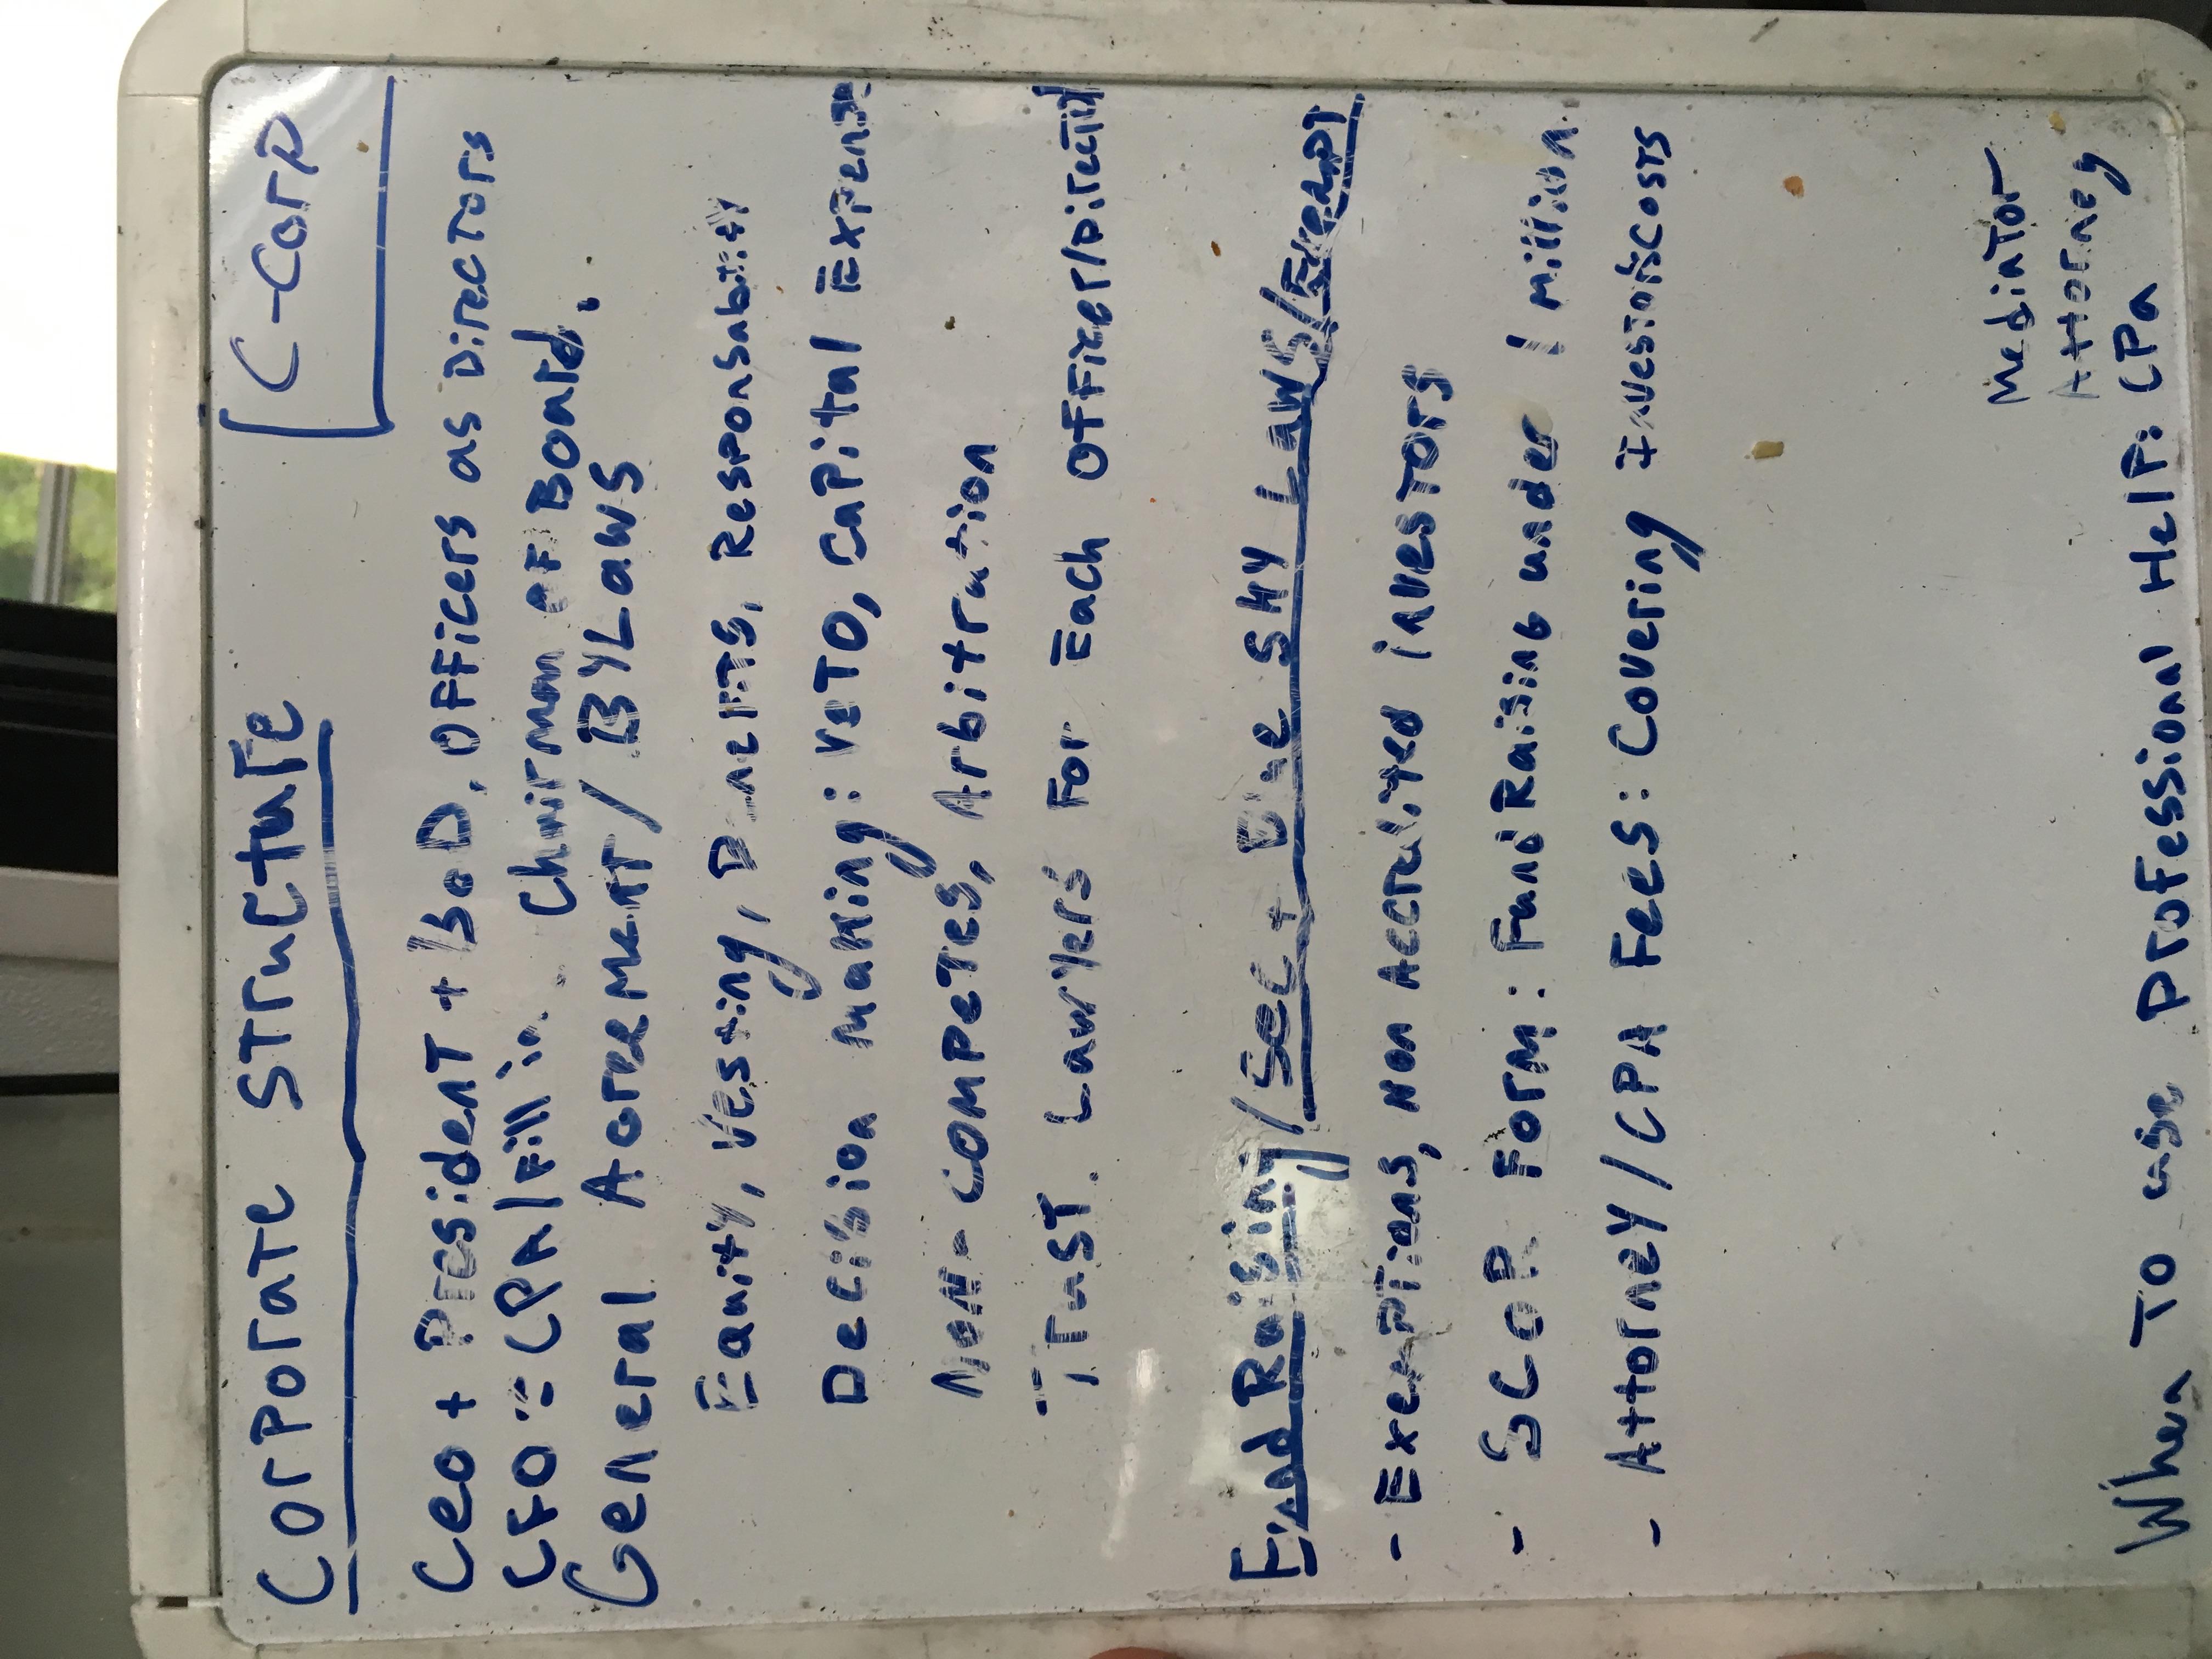 Corporate Structure
C-Corp
Ceo + President + BoD, Officers as Directors
CFO = CPA/Fill in. Chairman of Board.
General Agreement/ BYLaws
Equity, Vesting, Benefits, Responsability
Decision Making: VeTO, Capital Expense
Non-Competes, Arbitration
Trust. Lawyers For Each Officer/Director
Fund Raising/Sec + Blue Sky Laws/Exempt
- Exemptions, Non Accredited investors
- SCoR Form: Fund Raising under 1 Million.
- Attorney/CPA Fees: Covering Investors Costs
Mediator
Attorney
When To use Professional Help: CPa